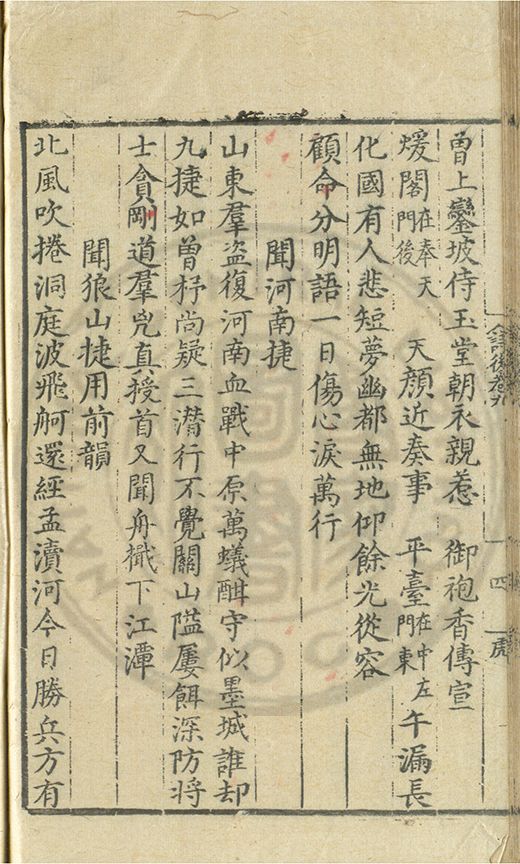 曾上鑾坡侍玉堂朝衣親惹 御袍香傳宣
煖閣在奉天門後 天顏近奏事 平臺在中左門東午漏長
化國有人悲短夢幽都無地仰餘光從容
顧命分明語一日傷心淚萬行
聞河南捷
山東羣盜復河南血戰中原萬蟻酣守似墨城誰却
九捷如曾杼尚疑三潛行不覺關山隘屢餌深防將
士貪剛道羣兇真授首又聞舟檝下江潭
聞狼山捷用前韻
北風吹捲洞庭波飛舸還經孟瀆河今日勝兵方有
後卷九
四
虎